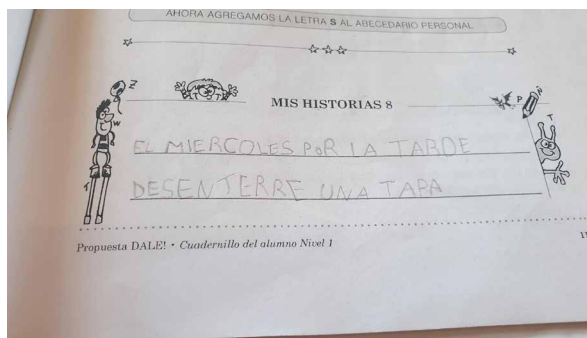 AHORA AGREGAMOS LA LETRA S AL ABECEDARIO PERSONAL
Z
MIS HISTORIAS 8
P
W
T
EL MIERCOLES POR LA TARDE
T
DESENTERRE UNA TAPA
Propuesta DALE! • Cuadernillo del alumno Nivel 1